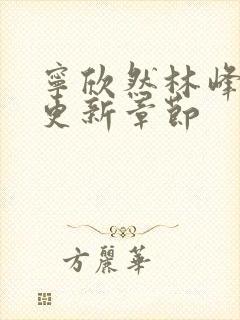 寧欣然林峰
更新章節
方麗華